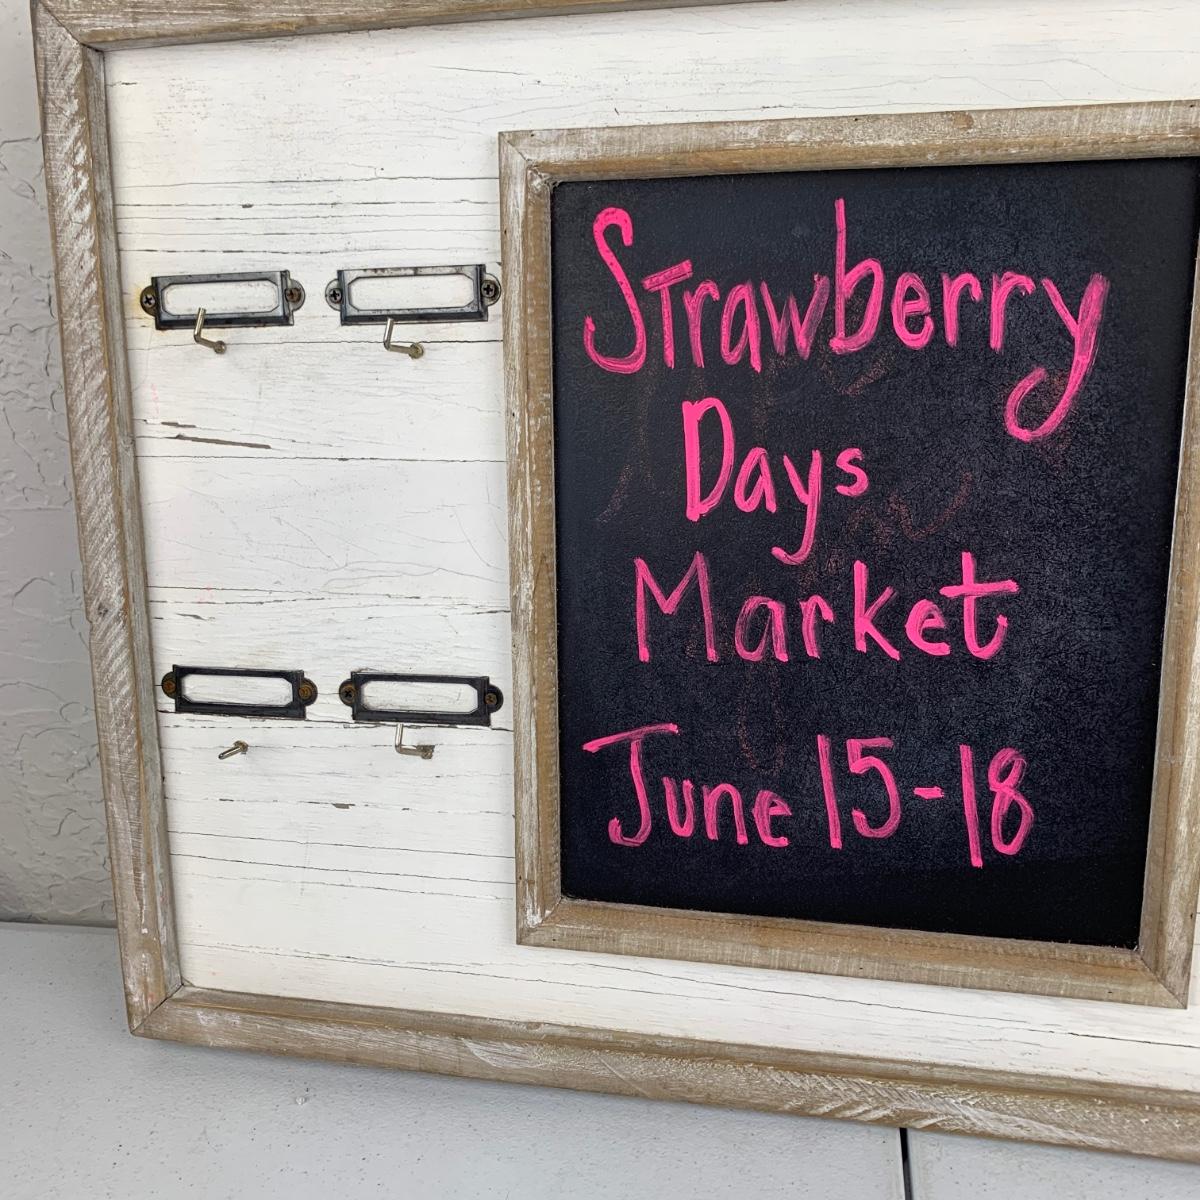 Strawberry
Days
Market
June 15-18